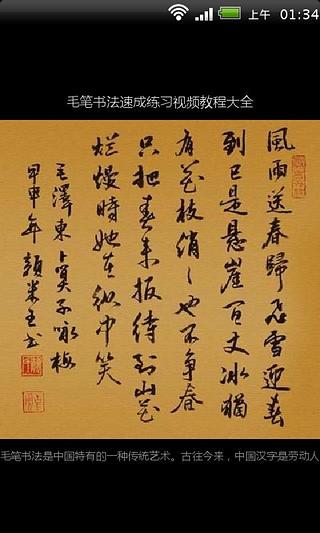 上午 01:34
毛笔书法速成练习视频教程大全
風雨送春歸飛雪迎春
到已是悬崖百丈冰猶
有花枝俏〻也不争春
只把春来报待到山花
烂熳時她在丛中笑
毛澤東卜算子咏梅
甲申年
毛笔书法是中国特有的一种传统艺术。古往今来，中国汉字是劳动人